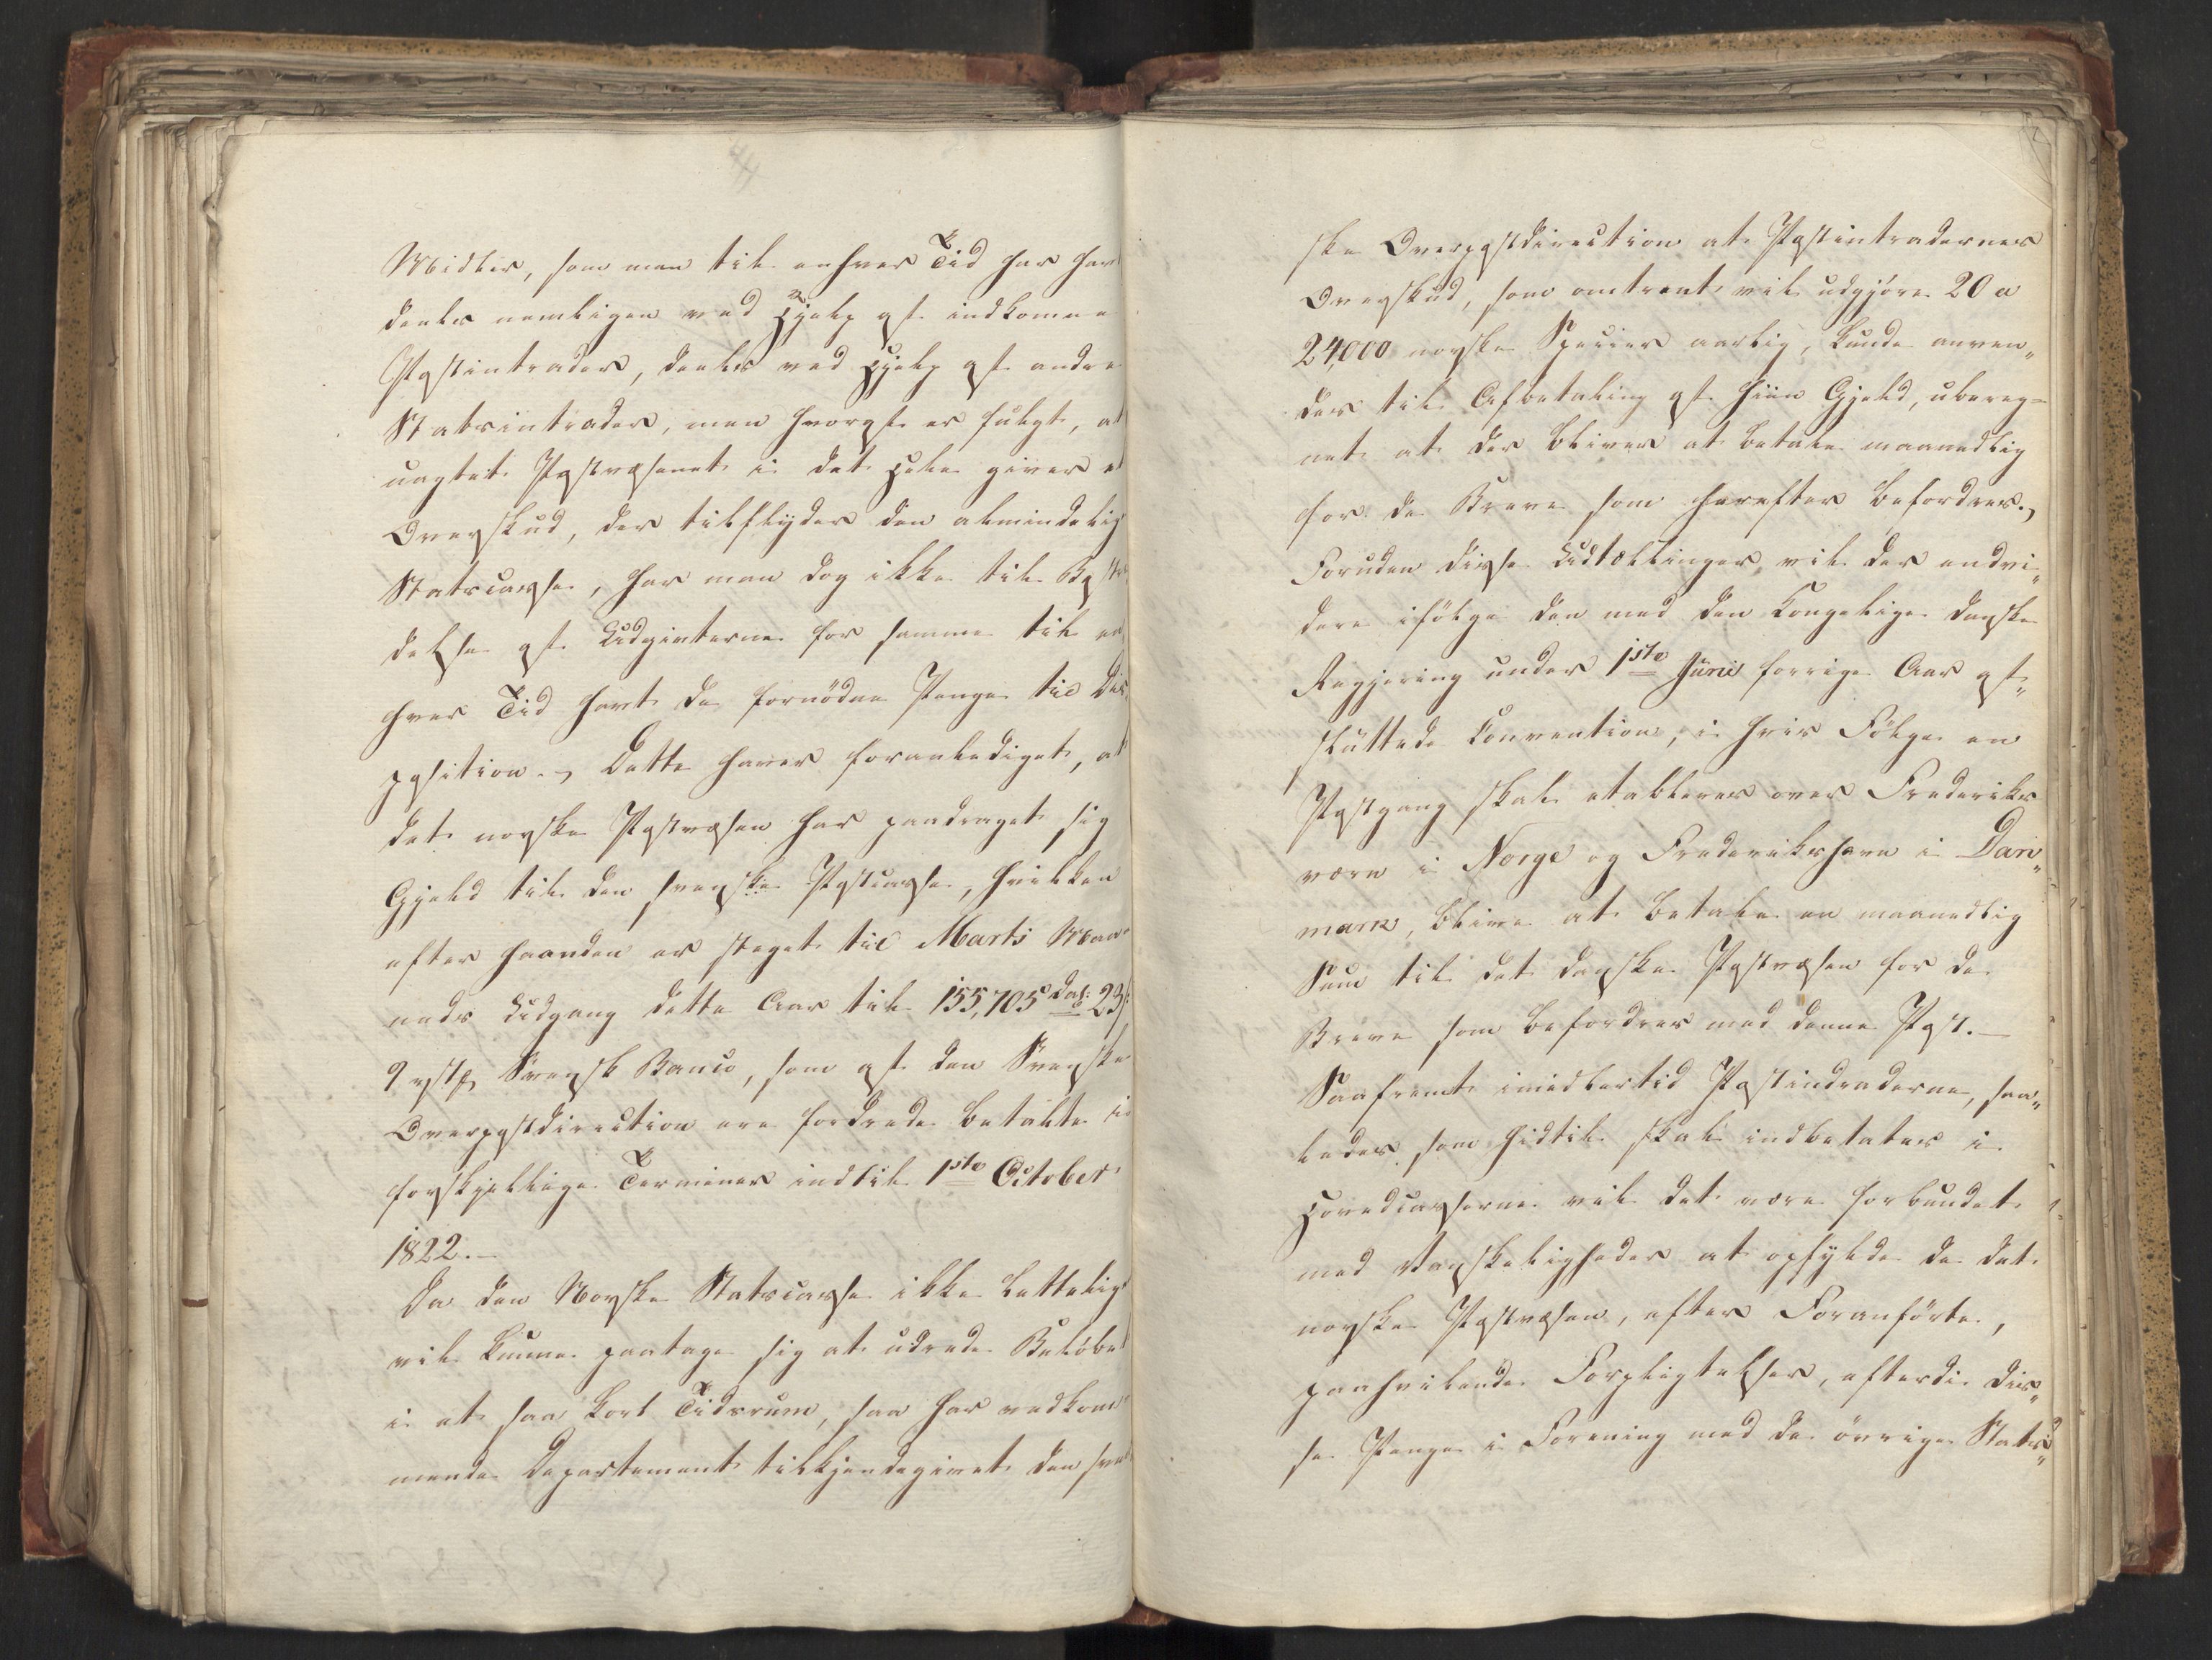 Midler, som man til enhver Tid har hav
deels nemligen ved Hjelp af indkomne
Postintrader, deels ved Hjelp af andre
Statsintrader, men hvoraf er fulgt, at
uagtet Postvæsenet i det Hele giver et
Overskud, der tilflyder den almindelig
Statscasse, har man dog ikke til Bestri
delse af Udgivterne for samme til en
hver Tid havt de fornödne Penge til Dis
position. – Dette haver foranlediget, at
det norske Postvæsen har paadraget sig
Gjeld til den svenske Postcasse, hvilken
efter haanden er steget til Marti Maa
neds Udgang dette Aar til 155,705 Dal: 23 ſ:
9 rst Svensk Banco, som af den Svenske
Overpostdirection ere fordrede betalte i
forskjellige Terminer indtil 1ste October
1822. –
Da den Norske Statscasse ikke lettelig
vil kunne paatage sig at udrede Belöbet
i et saa kort Tidsrum, saa har vedkom
mende Departement tilkjendegivet den sven
ske Overpostdirection at Postintradernes
Overskud, som omtrent vil udgjöre 20 a
24,000 norske Specier aarlig, kunde anven„
des til Afbetaling af hiin Gjeld, ubereg=
net at der bliver at betale maanedlig
for de Breve som herefter befordres. –
Foruden disse Udtællinger, vil der endvi„
dere ifölge den med den Kongelige danske
Regjering under 1ste Junii forrige Aar af„
sluttede Convention, i hvis Fölge en
Postgang skal etableres over Frederiks
værn i Norge og Frederikshavn i Dan„
mark, blive at betale en maanedlig
Sum til det danske Postvæsen for de
Breve som befordres med denne Post. –
Saafremt imidlertid Postindraderne, saa„
ledes som hidtil skal indbetales i
Hovedcasserne vil det være forbundet
med Vanskeligheder at opfylde de det
norske Postvæsen, efter Foranförte,
paahvilende Forpligtelser, efterdi dis„
se Penge i Forening med de övrige Stats„